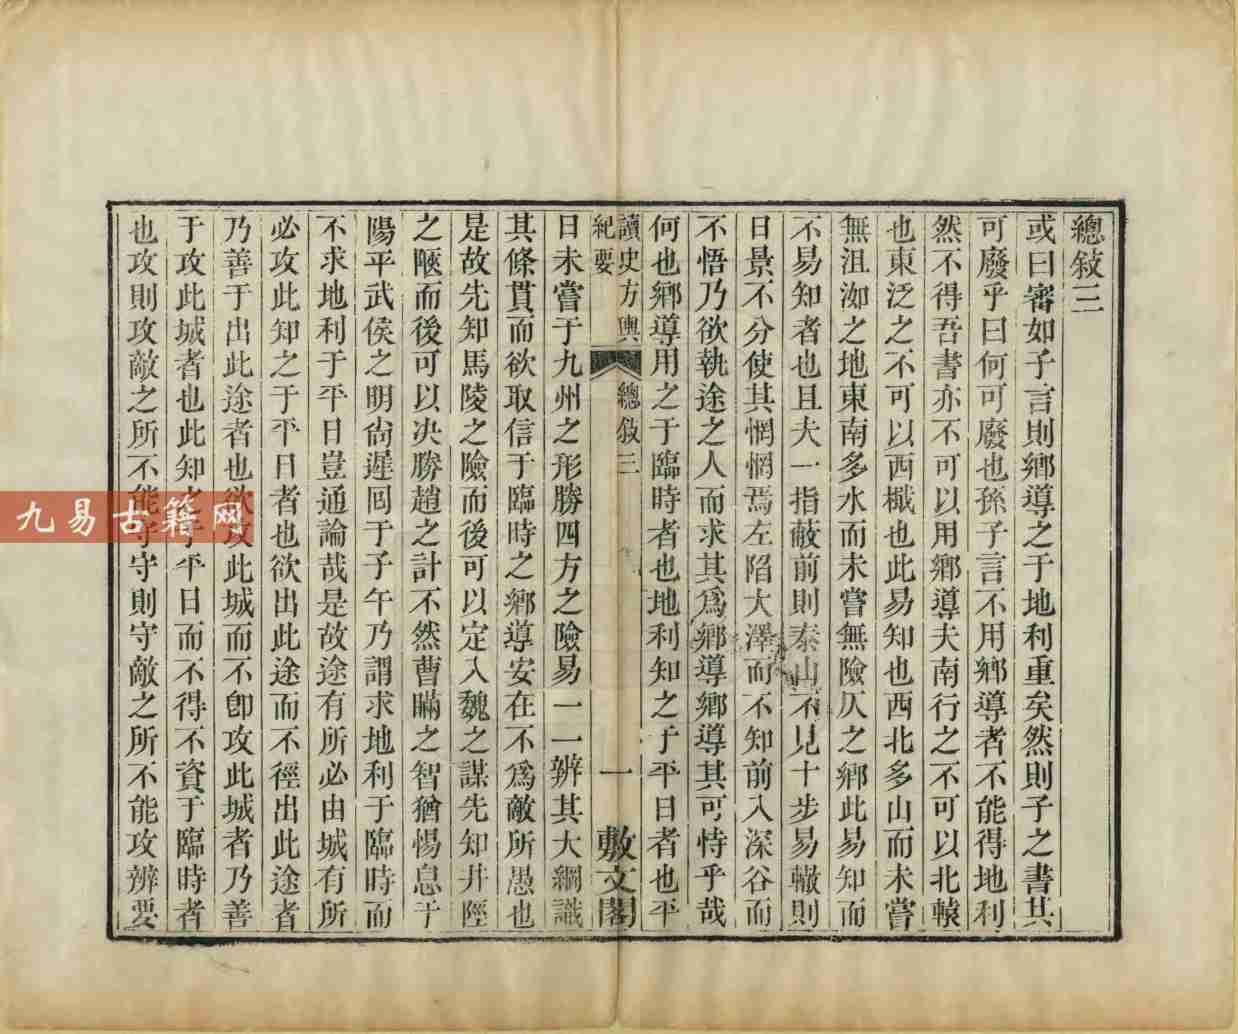 總敍三
或曰審如子言則鄕導之于地利重矣然則子之書其
可廢乎曰何可廢也孫子言不用鄕導者不能得地利
然不得吾書亦不可以用鄕導夫南行之不可以北轅
也東泛之不可以西檝也此易知也西北多山而未嘗
無沮洳之地東南多水而未嘗無險仄之鄕此易知而
不易知者也且夫一指蔽前則泰山不見十步易轍則
日景不分使其惘惘焉左陷大澤而不知前入深谷而
不悟乃欲執途之人而求其爲鄕導鄕導其可恃乎哉
何也鄕導用之于臨時者也地利知之于平日者也平
讀史方輿
紀要
總敍三
一
敷文閣
日未嘗于九州之形勝四方之險易一一辨其大綱識
其條貫而欲取信于臨時之鄕導安在不爲敵所愚也
是故先知馬陵之險而後可以定入魏之謀先知井陘
之陿而後可以决勝趙之計不然曹瞞之智猶惕息于
陽平武侯之明尙遲囘于子午乃謂求地利于臨時而
不求地利于平日豈通論哉是故途有所必由城有所
必攻此知之于平日者也欲出此途而不徑出此途者
乃善于出此途者也欲攻此城而不卽攻此城者乃善
于攻此城者也此知之于平日而不得不資于臨時者
也攻則攻敵之所不能守守則守敵之所不能攻辨要
九易古籍网